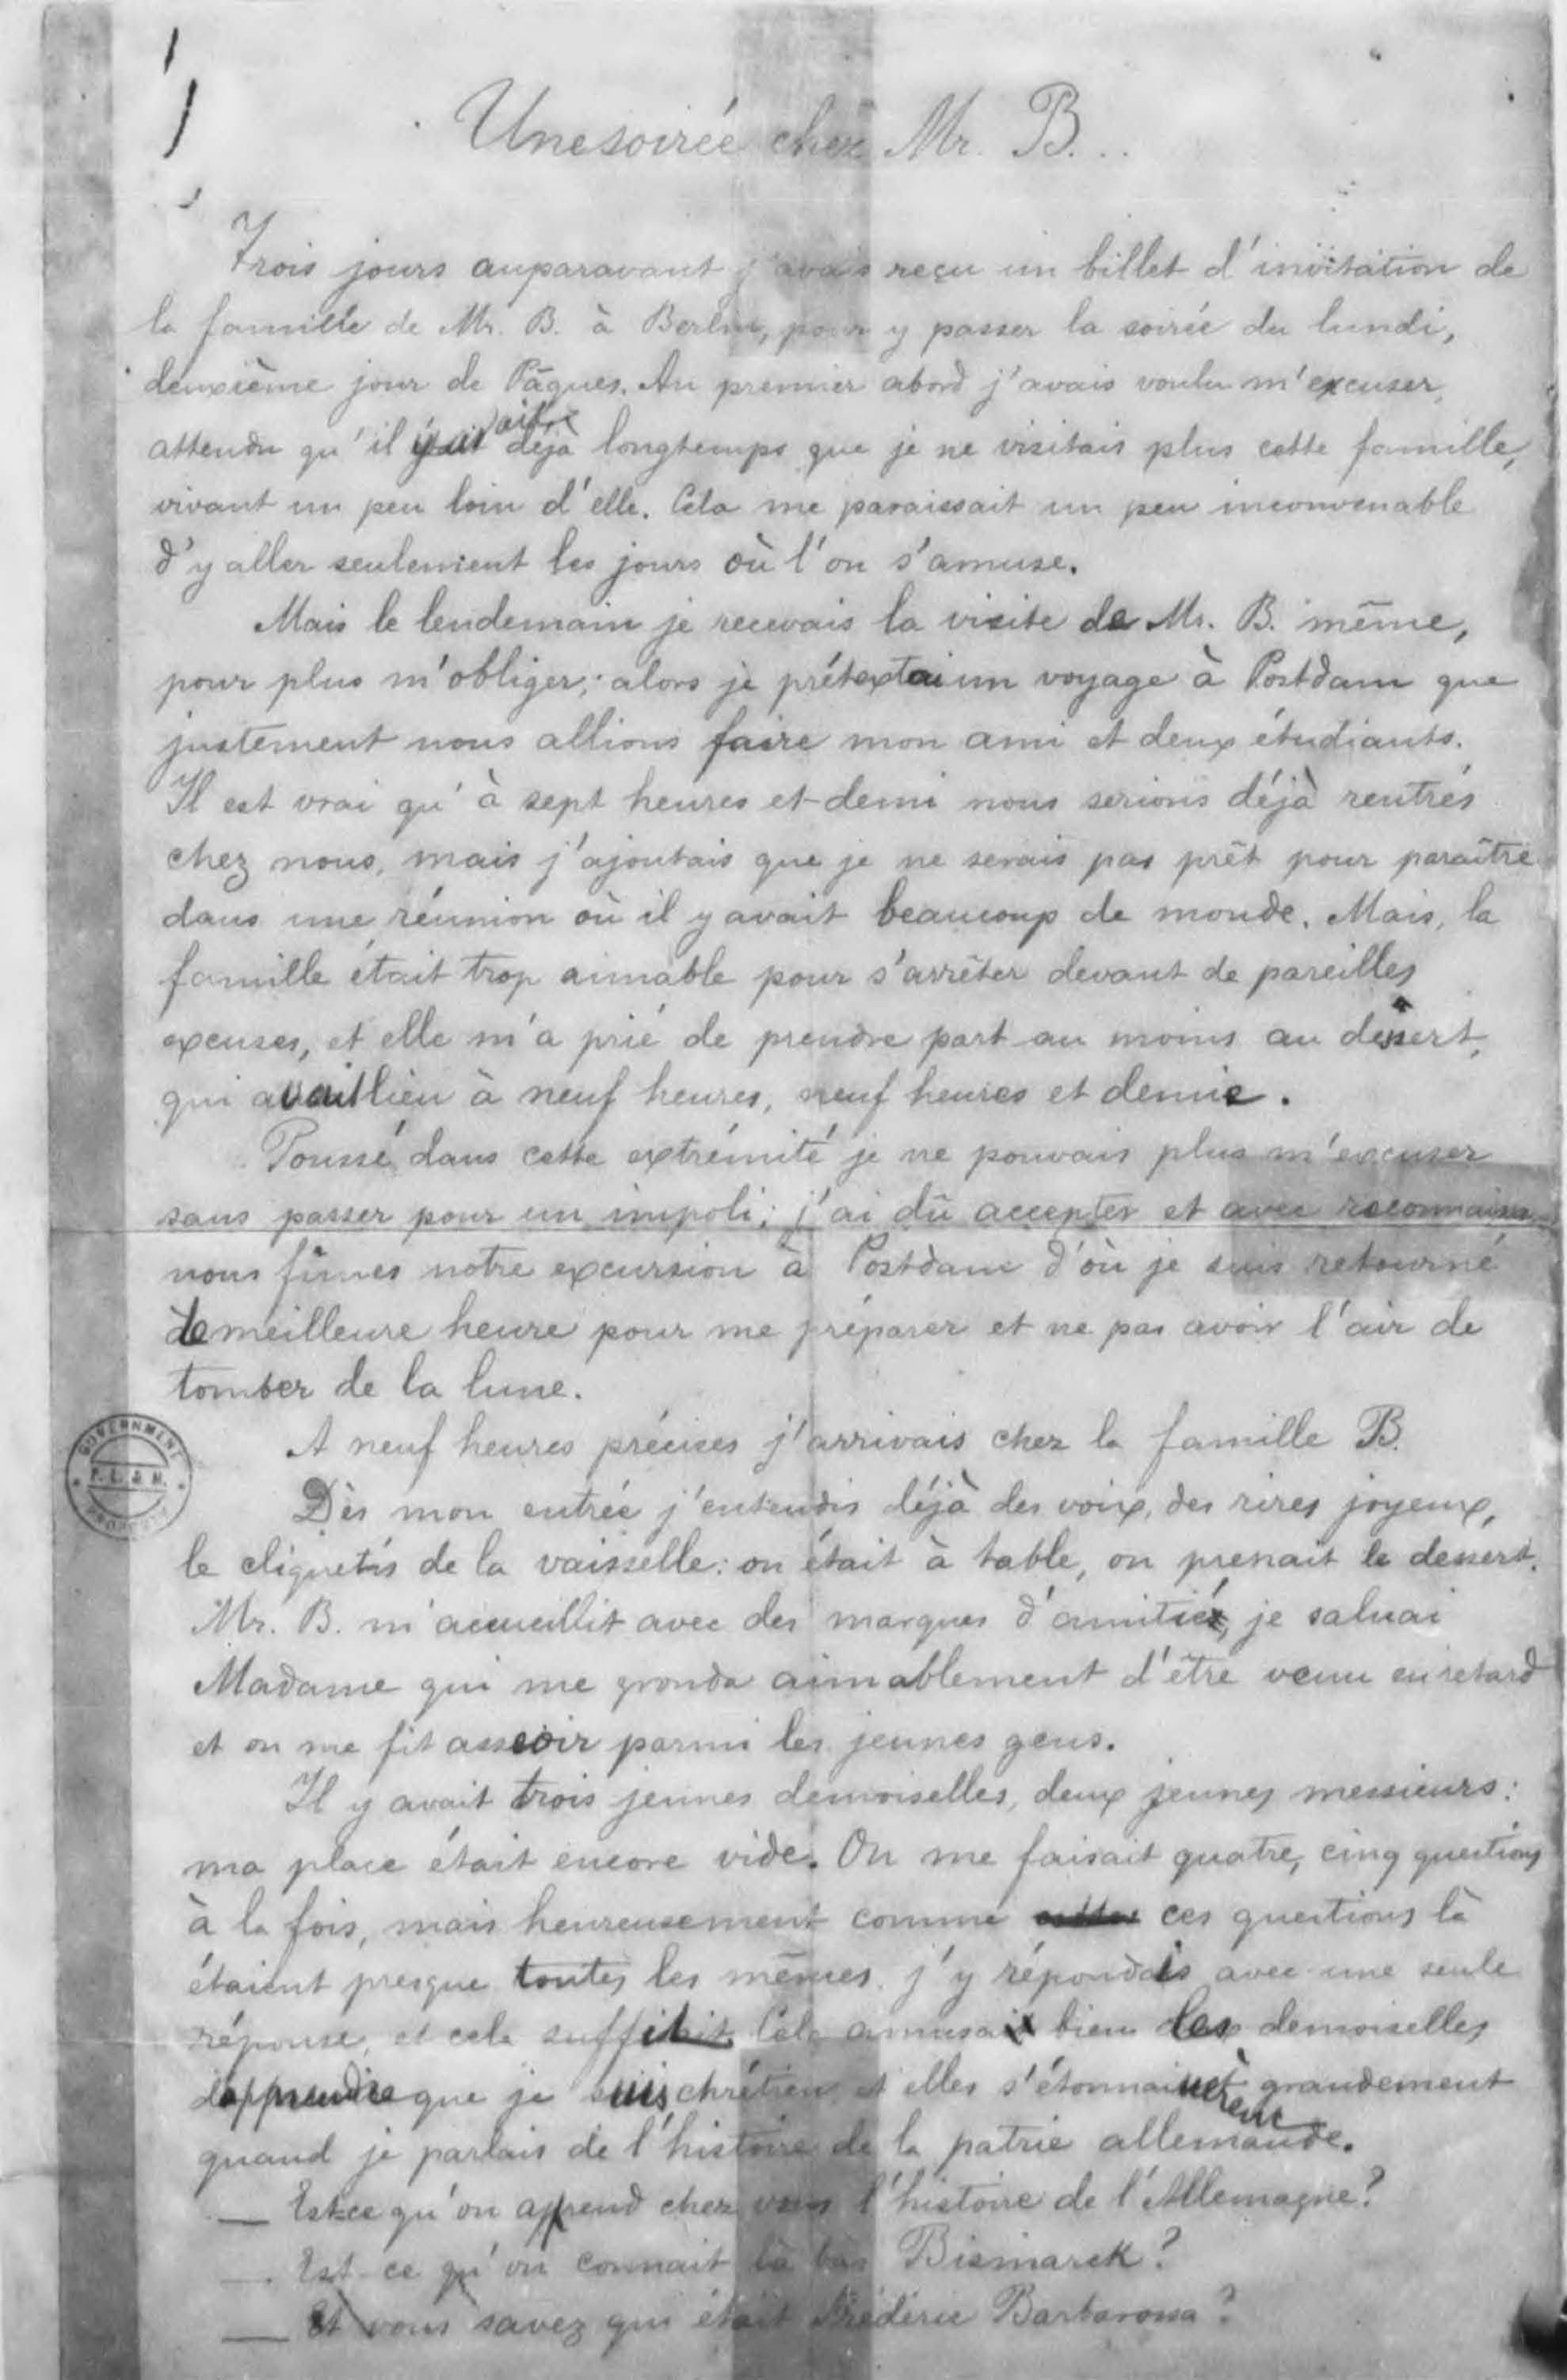 Une soirée chez Mr. B...
Trois jours auparavant j'avais reçu un billet d'invitation de
la famille de Mr. B. à Berlin, pour y passer la soirée du lundi,
deuxième jour de Pâques. Au premier abord j'avais voulu m'excuser,
attendu qu'il y avait déjà longtemps que je ne visitais plus cette famille,
vivant un peu loin d'elle. Cela me paraissait un peu inconvenable
d'y aller seulement les jours où l'on s'amuse.
Mais le lendemain je recevais la visite de Mr. B. même,
pour plus m'obliger; alors je prétextai un voyage à Postdam que
justement nous allions faire mon ami et deux étudiants.
Il est vrai qu'à sept heures et demi nous serions déjà rentrés
chez nous, mais j'ajoutais que je ne serais pas prêt pour paraître
dans une réunion où il y avait beaucoup de monde. Mais, la
famille était trop aimable pour s'arrêter devant de pareilles
excuses, et elle m'a prié de prendre part au moins au dessert,
qui avait lieu à neuf heures, neuf heures et demie.
Poussé dans cette extrémité je ne pouvais plus m'excuser
sans passer pour un impoli; j'ai dû accepter et avec
nous fîmes notre excursion à Postdam d'où je suis retourné
de meilleure heure pour me préparer et ne pas avoir l'air de
tomber de la lune.
A neuf heures précises j'arrivais chez la famille B.
GOVERNMENT
P. L. & M.
PROPERTY
Dès mon entrée j'entendis déjà des voix, des rires joyeux,
le cliquetis de la vaisselle: on était à table, on prenait le dessert.
Mr. B. m'accueillit avec des marques d'amitié, je saluai
Madame qui me gronda aimablement d'être venu en retard
et on me fit asseoir parmi les jeunes gens.
Il y avait trois jeunes demoiselles, deux jeunes messieurs:
ma place était encore vide. On me faisait quatre, cinq questions
à la fois, mais heureusement comme ces questions là
étaient presque toutes les mêmes, j'y répondais avec une seule
réponse, et cela Cela amusait bien les demoiselles
d'apprendre que je suis chrétien et elles s'étonnaient grandement
quand je parlais de l'histoire de la patrie allemande.
— Est-ce qu'on apprend chez vous l'histoire de l'Allemagne?
— Est-ce qu'on connait là bas Bismarck?
— Et vous savez qui était Frédéric Barbarossa?